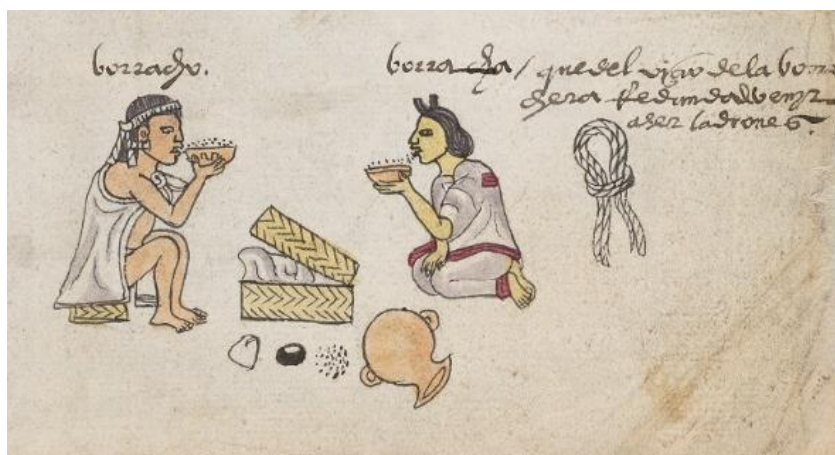 borracho.
borracha / que del vizio de la borra
chera redunda a venyr
a ser ladrones.